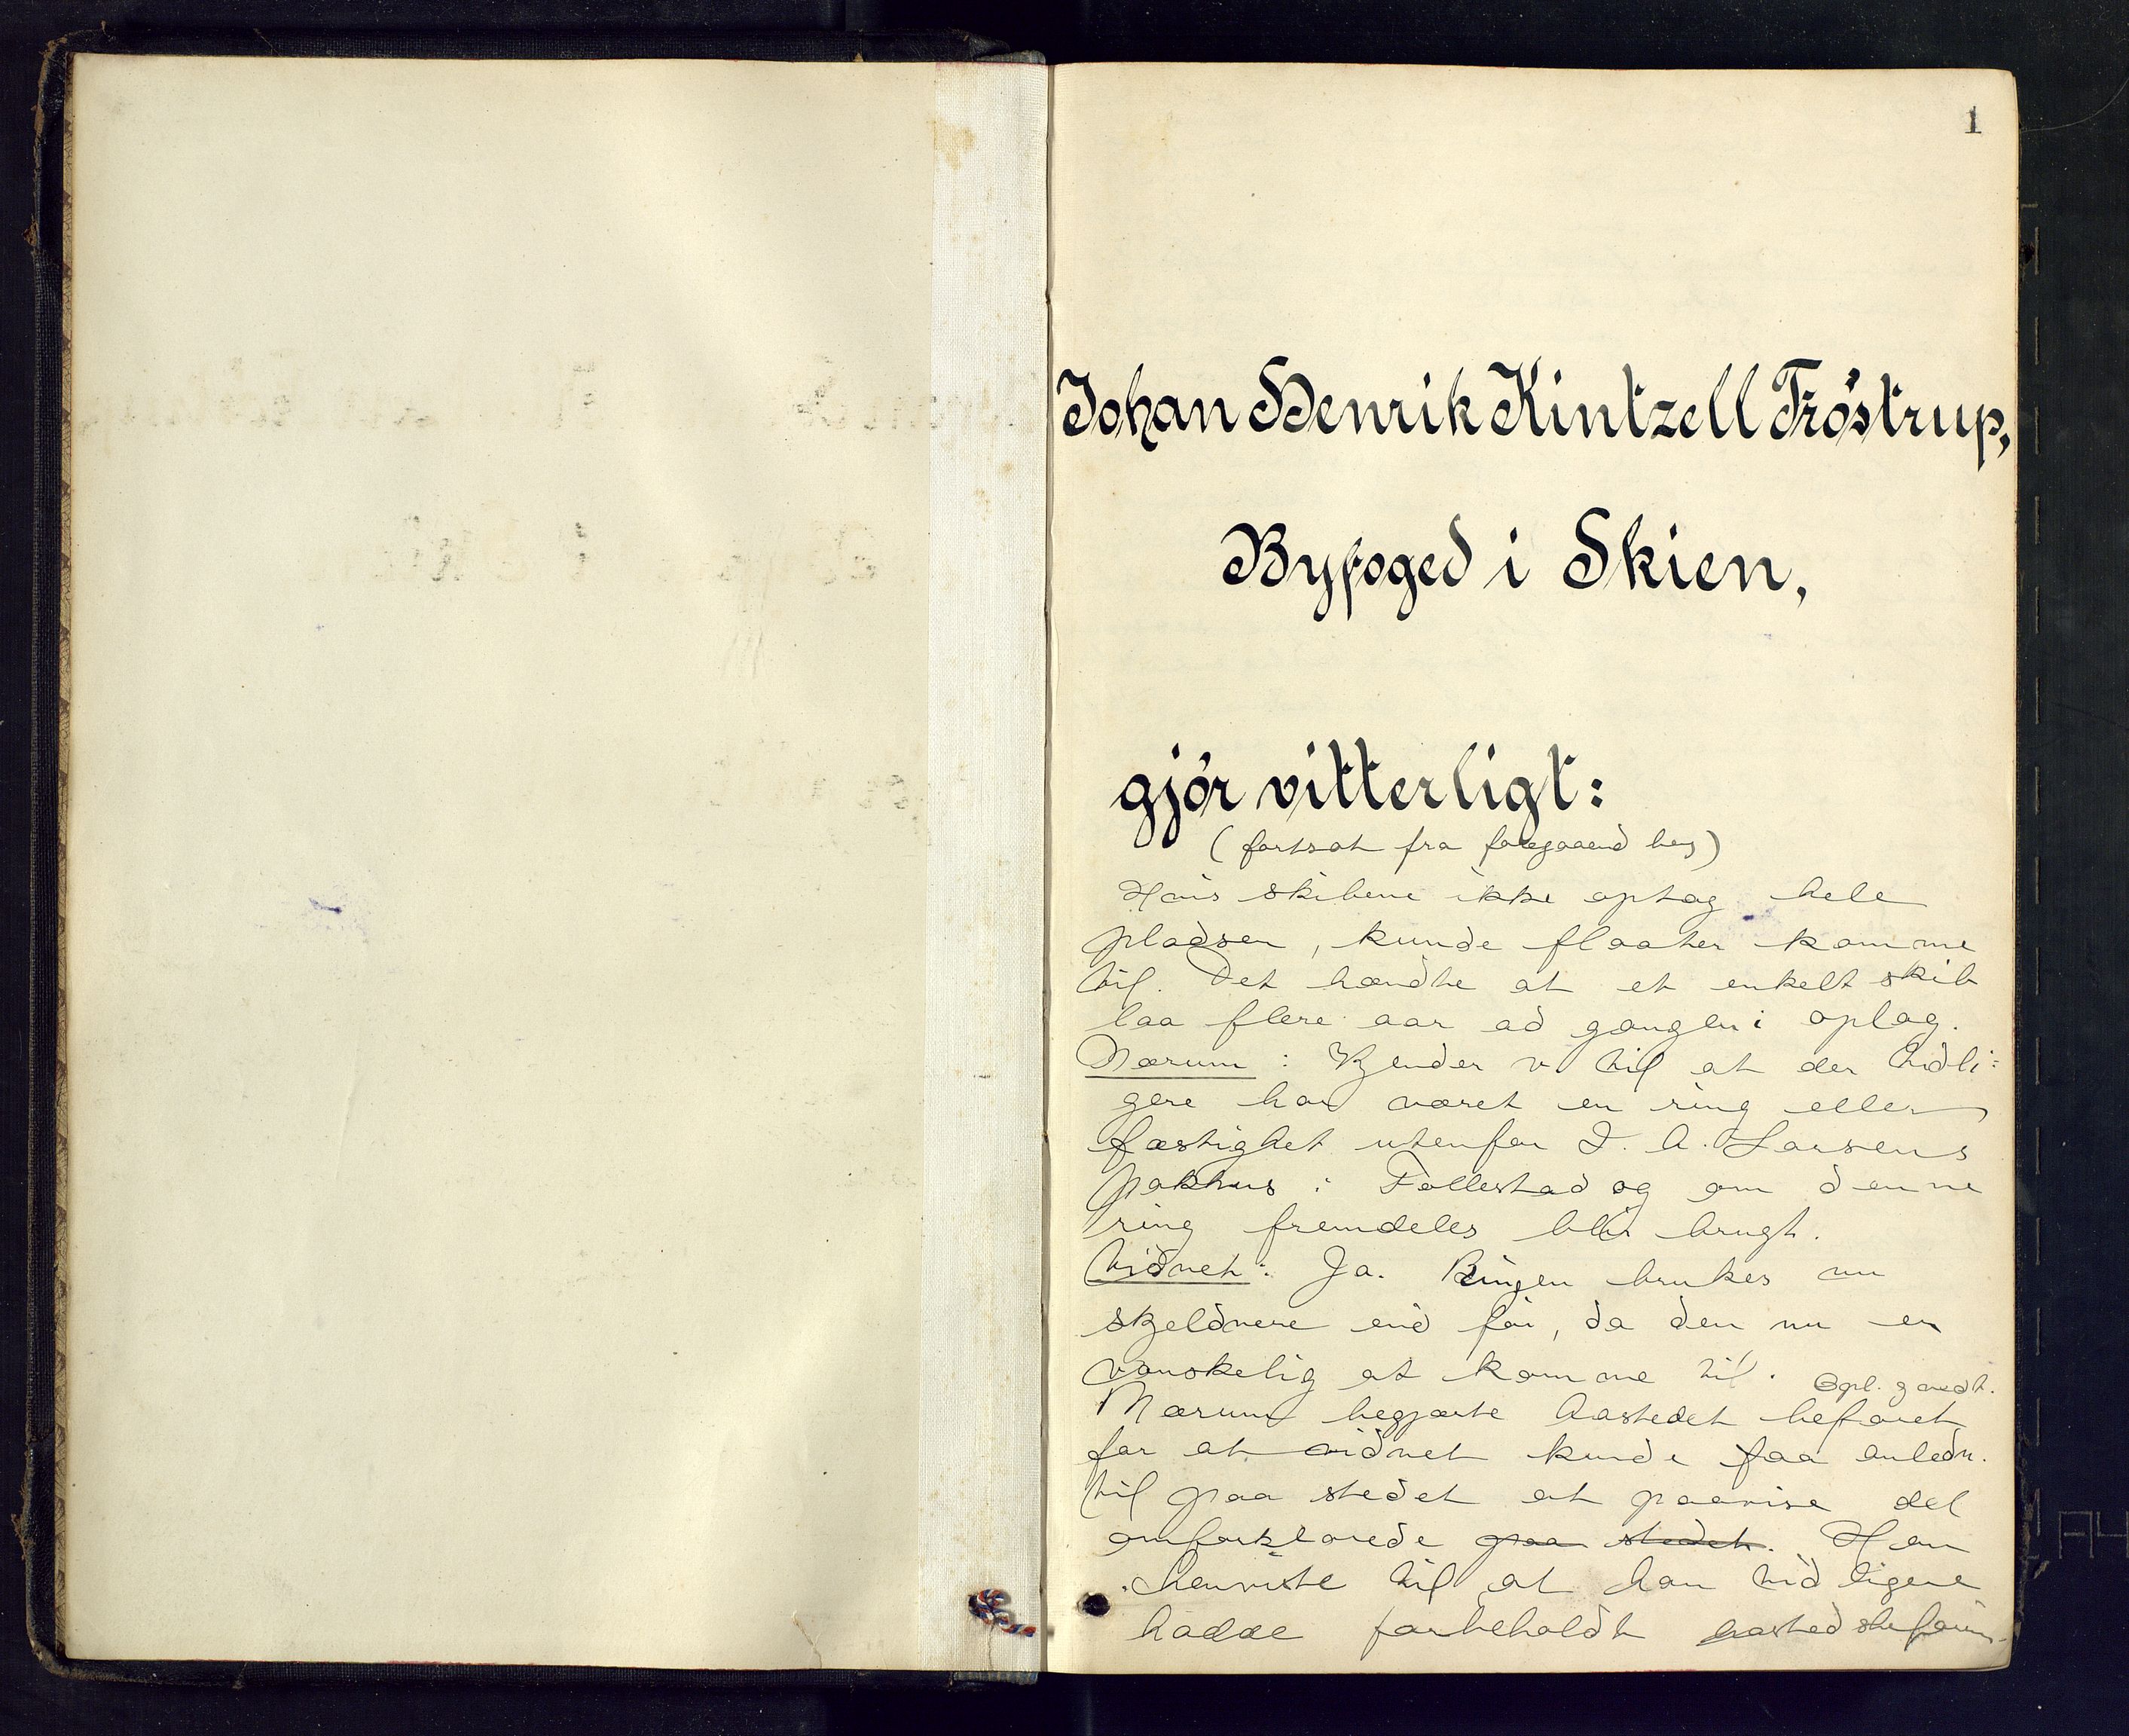 1
Johan Henrik Kintzell Tröstrup,
Byfoged i Skien,
gjör vitterligt:
(fortsat fra foregaaend
Hvis skibene ikke optog hele
pladsen, kunde flaater komme
til. Det hændte at et enkelt skib
laa flere aar ad gangen i oplag.
Nærum: Kjender v. til at der tidli:
gere har været en ring eller
fæstighet utenfor I. A. Larsens
pakhus i Follestad og om denne
ring fremdeles blir brugt.
Vidnet: Ja. Ringen brukes nu
skjeldnere end før, da den nu er
vanskelig at komme til. Opl. g vedt.
Nærum begjærte aastedet befaret
for at vidnet kunde faa anledn.
til paa stedet at paavise det
omforklarede paa stedet. Han
henviste til at han tidligere
hadde forbeholdt aastedsbefarin-